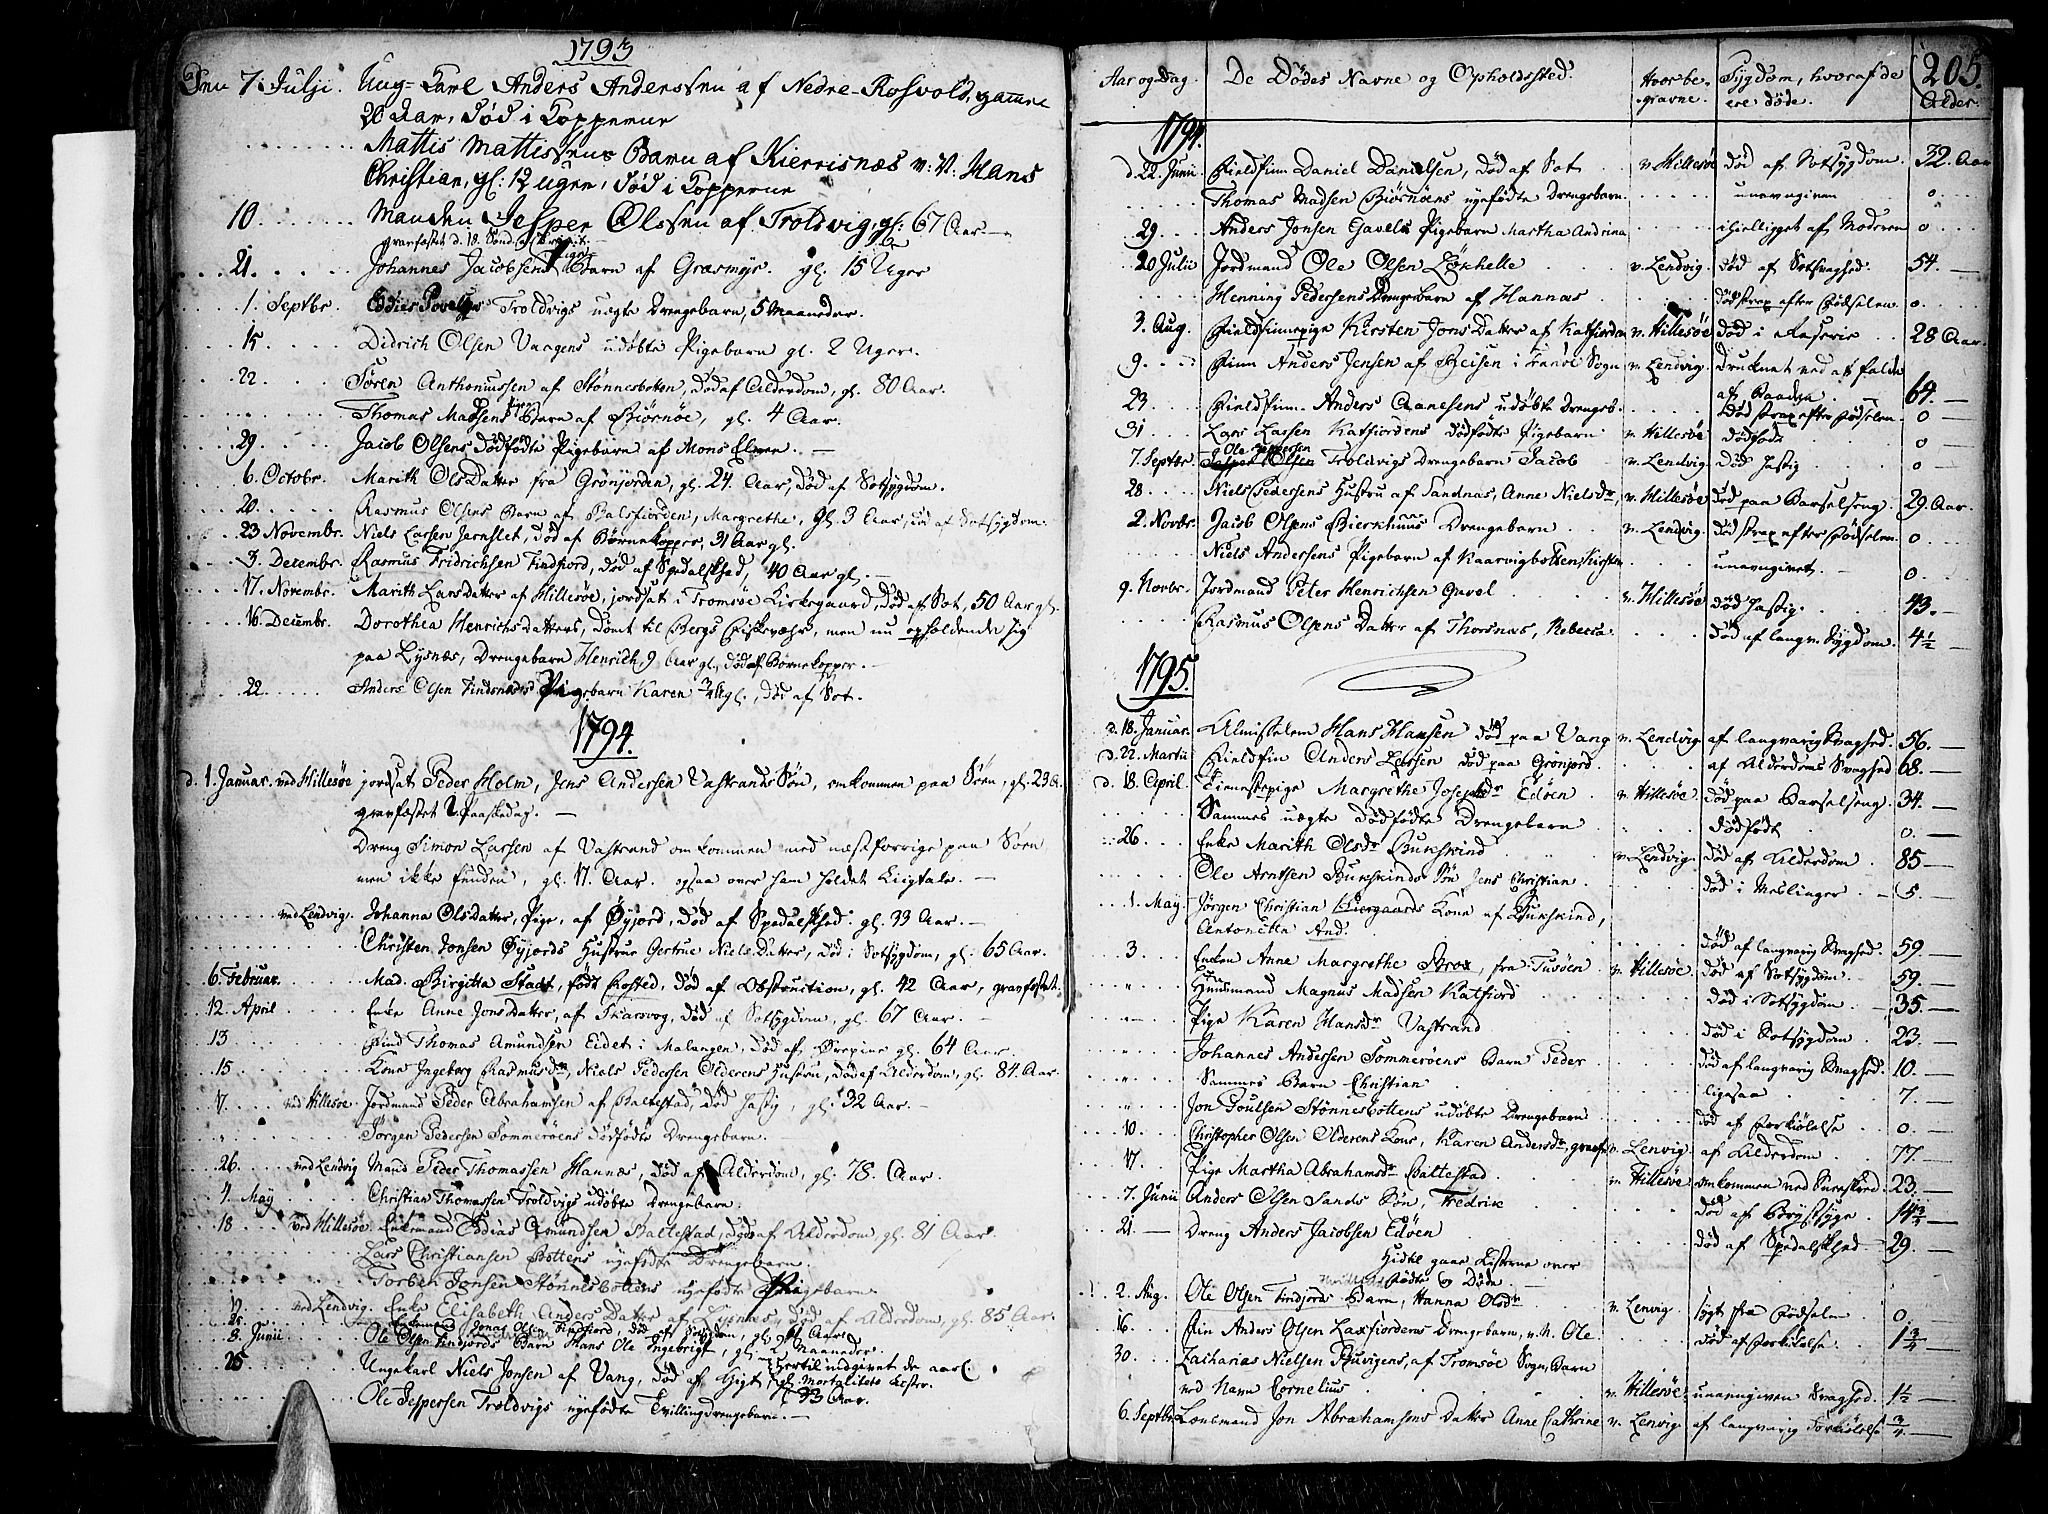 1793
Den 7. Julji. Ung-Karl Anders Anderssen af Nedre-Rosvold, gamme
20 Aar, død i Kopperne
Mattis Mattissens Barn af Kierrisnæs v: N: Hans
Christian, gl: 12 Uger, død i Kopperne
10 Manden Jesper Olssen af Troldvig, gl: 67 Aar
gravfæstet d. 18. Sønd.
21. Johannes Jacobsens Barn af Græsmyr. gl. 15 Uger
1. Septbr. Troldvigs uægte Drengebarn, 5 Maaneder.
15 Didrich Olsen Vaagens udøbte Pigebarn gl. 2 Uger.
22 Søren Anthoniussen af Stønnesbotten, død af Alderdom, gl. 80 Aar.
" Thomas Madsens Barn af Biørnøe, gl. 4 Aar.
29 Jacob Olsens dødfødte Pigebarn af Mons Elven.
6. Octobr. Marith Ols Datter fra Grønjorden, gl. 24 Aar, død af Sotsygdom.
20. Rasmus Olsens Barn af Balsfiorden, Margrethe, gl. 3 Aar, død af Sotsygdom
23 Novembr. Niels Larsen Jernslet, død af Børnekopper, 31 Aar gl.
3. Decembr. Rasmus Fridrichsen Findfiord, død af Spedalskhed, 40 Aar gl.
17. Novembr. Marith Larsdatter af Hillesøe, jordsat i Tromsøe Kirkegaard, død af Sot, 50 Aar gl.
16 Decembr. Dorothea Henrichsdatters, dømt til Bergs Fiskevæhr, men nu opholdende sig
paa Lysnæs, Drengebarn Henrich, 9 Aar gl., død af Børnekopper.
22. Anders Olsen Findsnæs Pigebarn Karen gl., død af Sot.
1794.
d. 1. Januar. ved Hillesøe jordsat Peder Holm, Jens Andersen Vastrands Søn, omkommen paa Søen, gl. 23 A.
gravfæstet 2. Paaskedag.
Dreng Simon Larsen af Vastrand omkommen med næstforrige paa Søen
men ikke funden, gl. 17. Aar. ogsaa over ham holdet Liigtale.
ved Lendvig. Johanna Olsdatter, Pige, af Øyjord, død af Spedalskhed. gl. 33 Aar.
Christen Jonsen Øyjords Hustrue Gertrue Niels Datter, død i Sotsygdom, gl. 65 Aar.
6. Februar. Mad. Birgitta Stadt, født Rosted, død af Obstruction, gl. 42 Aar, gravfæstet.
12. April Enke Anne Jonsdatter, af Skarsvog, død af Sotsygdom, gl. 67 Aar.
13 Find Thomas Amundsen Eidet i Malangen, død af gl. 64 Aar.
15 Kone Ingeborg Rasmusdr, Niels Pedersen Olderens Hustru, død af Alderdom, gl. 84. Aar.
17 ved Hillesøe. Jordmand Peder Abrahamsen af Baltestad, død hastig, gl. 32 Aar.
" Jørgen Pedersen Sommerøens dødfødte Drengebarn.
26 ved Lendvig Mand Peder Thomassen Hannæs, død af Alderdom, gl. 78. Aar.
4. May Christian Thomassen Troldvigs udøbte Drengebarn.
18 ved Hillesøe Enkemand Amundsen Baltestad, død af Alderdom, gl. 81 Aar.
" Lars Christiansen Bottens nyefødte Drengebarn.
Torben Jonsen Stønnesbottens nyefødte Pigebarn
ved Lendvig. Enke Elisabeth Anders Datter af Lysnæs, død af Alderdom, gl. 85 Aar.
25 Enkemand Jonas Olsen Findfiord, død af Sotsygdom, gl. Aar.
8. Junii Ole Olsen Findjords Barn Hans Ole Ingebrigt, gl. 2 Maaneder.
25 Ungekarl Niels Jonsen af Vang, død af Gigt, gl. 33 Aar.
hertil indgivet de aarl.
Mortalitets Lister.
Ole Jespersen Troldvigs nyefødte Tvillingdrengebarn.
205.
Aar og Dag. De Dødes Navne og Opholdssted. Hvor be-gravne. Sygdom, hvoraf de ere døde. Alder.
1794.
d. 22. Junii Fieldfinn Daniel Danielsen, død af Sot v. Hillesøe død af Sotsygdom. 32. Aar
Thomas Madsen Biørnøens nyefødte Drengebarn. unavngiven 0
29 Anders Jonsen Gavels Pigebarn Martha Andrina ihielligget af Moderen 0
20 Julii Jordmand Ole Olsen Løxhelle v. Lendvig. død af Sotsvaghed. 54.
Henning Pedersens Drengebarn af Hannæs død strax efter Fødselen. 0.
3. Aug. Fieldfinnepige Kirsten Jons Datter af Katfjorden v. Hillesøe død i Raserie 28 Aar.
9 Finn Anders Jensen af Reisen i Tranøe Sogn v. Lendvig. Druknet ved at falde
af Baaden 64.
23 Fieldfinn Anders Aanesens udøbte Drengeb. død strax efter Fødselen 0
31 Lars Larsen Katfiordens dødfødte Pigebarn v. Hillesøe dødfødt 0
7. Septbr. Ole Jespersen Troldvigs Drengebarn Jacob v. Lendvig død hastig 0
28 Niels Pedersens Hustru af Sandnæs, Anne Nielsdr, v. Hillesøe død paa Barselseng. 29 Aar.
2. Novbr. Jacob Olsens Bierkhaugs Drengebarn v. Lendvig. død strax efter Fødselen 0.
Niels Andersens Pigebarn af Kaarvigbotten, Kirsten unavngivet. 0.
9. Novbr. Jordmand Peter Henrichsen Gavel v. Hillesøe død hastig. 43.
Rasmus Olsens Datter af Thorsnæs, Rebecca død af langv. Sygdom. 4½
1795.
d. 18. Januar. Almisselem Hans Hansen død paa Vang v. Lendvig. af langvarig Svaghed. 56.
d. 22. Martii Fieldfin Anders Larsen død paa Grønjord. af Alderdoms Svaghed 68.
d. 18. April. Tienestepige Margrethe Josephsdr Edøen v. Hillesøe død paa Barselseng. 34.
Sammes uægte dødfødte Drengebarn dødfødt 0.
26 Enke Marith Olsdr Bukskind v. Lendvig. død af Alderdom. 85
Ole Arntsen Bukskinds Søn Jens Christian død i Meslinger 5
1. May. Jørgen Christian Kiergaards Kone af Bukskind,
Antonetta And. død af langvarig Svaghed. 59.
3 Enken Anne Margrethe Brox, fra Tusøen v. Hillesøe død af Sotsygdom. 59.
" Huusmand Magnus Madsen Katfiord død i Sotsygdom 35.
" Pige Karen Hansdr Vastrand død i Sotsygdom. 23.
" Johannes Andersen Sommerøens Barn Peder død af langvarig Svaghed. 10.
" Sammes Barn Christian ligesaa 7.
" Jon Poulsen Stønnesbottens udøbte Drengebarn død af Forkiølelse 0.
10. Christopher Olsen Olderens Kone, Karen Andersdr, gravf. v. Lenvig. af Alderdom. 77.
17. Pige Martha Abrahamsdr Baltestad v. Hillesøe omkommen ved Sneeskred. 23.
7. Junii Anders Olsen Sands Søn, Fredrik død af Brystsyge. 14¾
21. Dreng Anders Jacobsen Edøen død af Spedalskhed 29.
Hidtil gaae Listerne over
Fødte og Døde.
2. Aug. Ole Olsen Findjords Barn, Hanna Olsdr v. Lenvig. sygt fra Fødselen 0.
16. Fin Anders Olsen Laxfiordens Drengebarn, v. N. Ole. død af Forkiølelse. 1¾
30 Zacharias Nielsen af Tromsøe Sogn, Barn
ved Navn Cornelius v. Hillesøe. unavngiven Svaghed. 1½
6. Septbr. Lonsmand Jon Abrahamsens Datter Anne Cathrine v. Lenvig. af langvarig Forkiølelse ¾